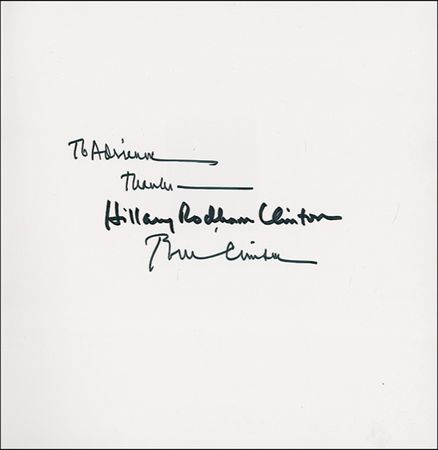 To Adrienne
Thanks
Hillary Rodham Clinton
Bill Clinton